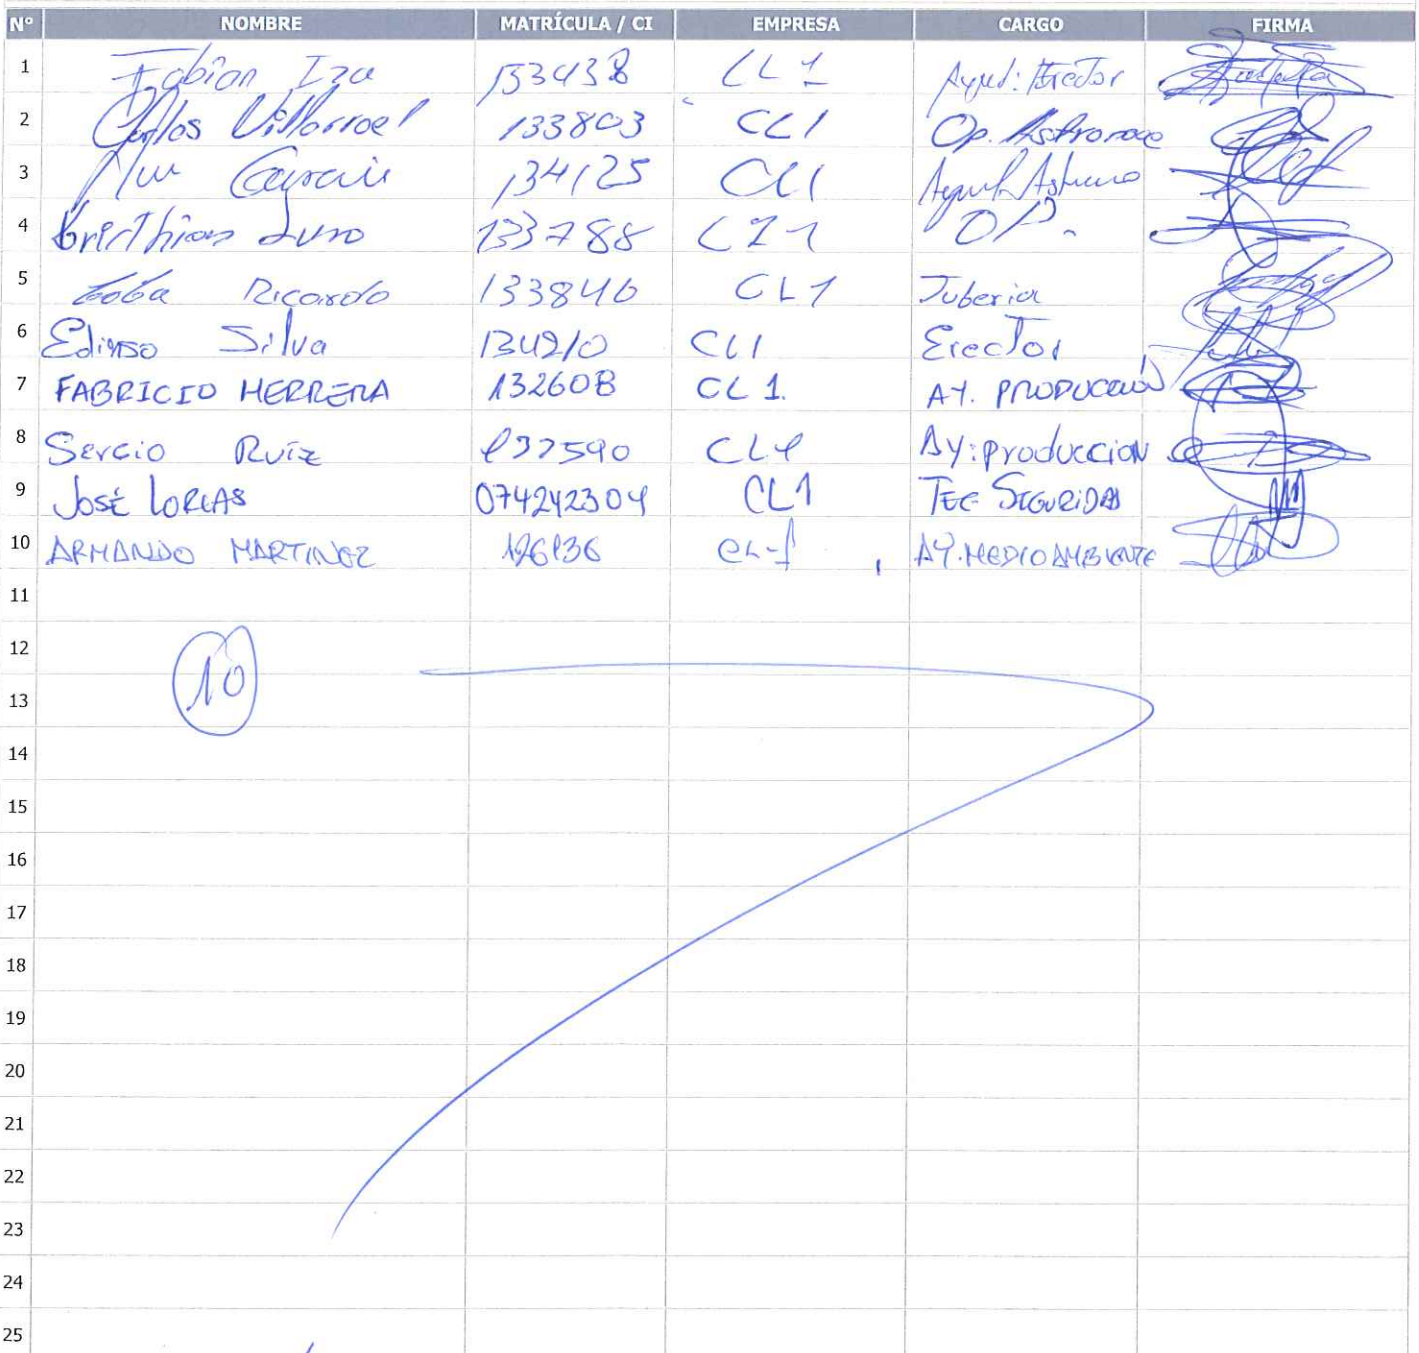 Nº NOMBRE MATRÍCULA / CI EMPRESA CARGO FIRMA
1 Fabian Iza 133438 CL1 Ayud: Erector
2 Carlos Villarroel 133803 CL1 Op. Astronoce
3 134125 CL1
4 Cristhian Luno 133788 CL1 OP.
5 Ricardo 133846 CL1 Tuberia
6 Edinso Silva 134210 CL1 Erector
7 FABRICIO HERRERA 132608 CL1. AY. PRODUCCIÓN
8 Sercio Ruiz 137590 CL1 Ay: produccion
9 José LORCAS 074242304 CL1 TEC SEGURIDAD
10 ARMANDO MARTINEZ 126136 CL-1 AY. MEDIO AMBIENTE
11
12
10
13
14
15
16
17
18
19
20
21
22
23
24
25